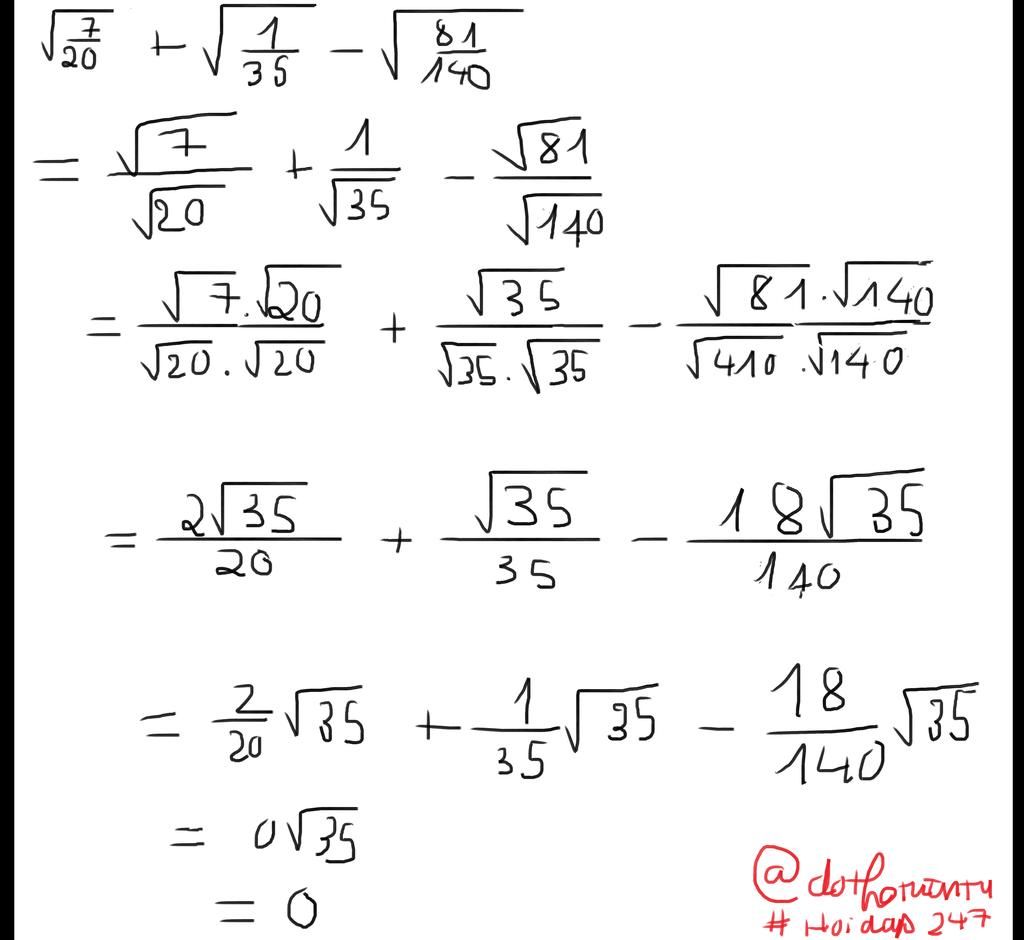 √(7/20) + √(1/35) − √(81/140)
= √7/√20 + 1/√35 − √81/√140
= (√7.√20)/(√20.√20) + √35/(√35.√35) − (√81.√140)/(√410.√140)
= 2√35/20 + √35/35 − 18√35/140
= 2/20 √35 + 1/35 √35 − 18/140 √35
= 0√35
= 0
# Hoidap 247